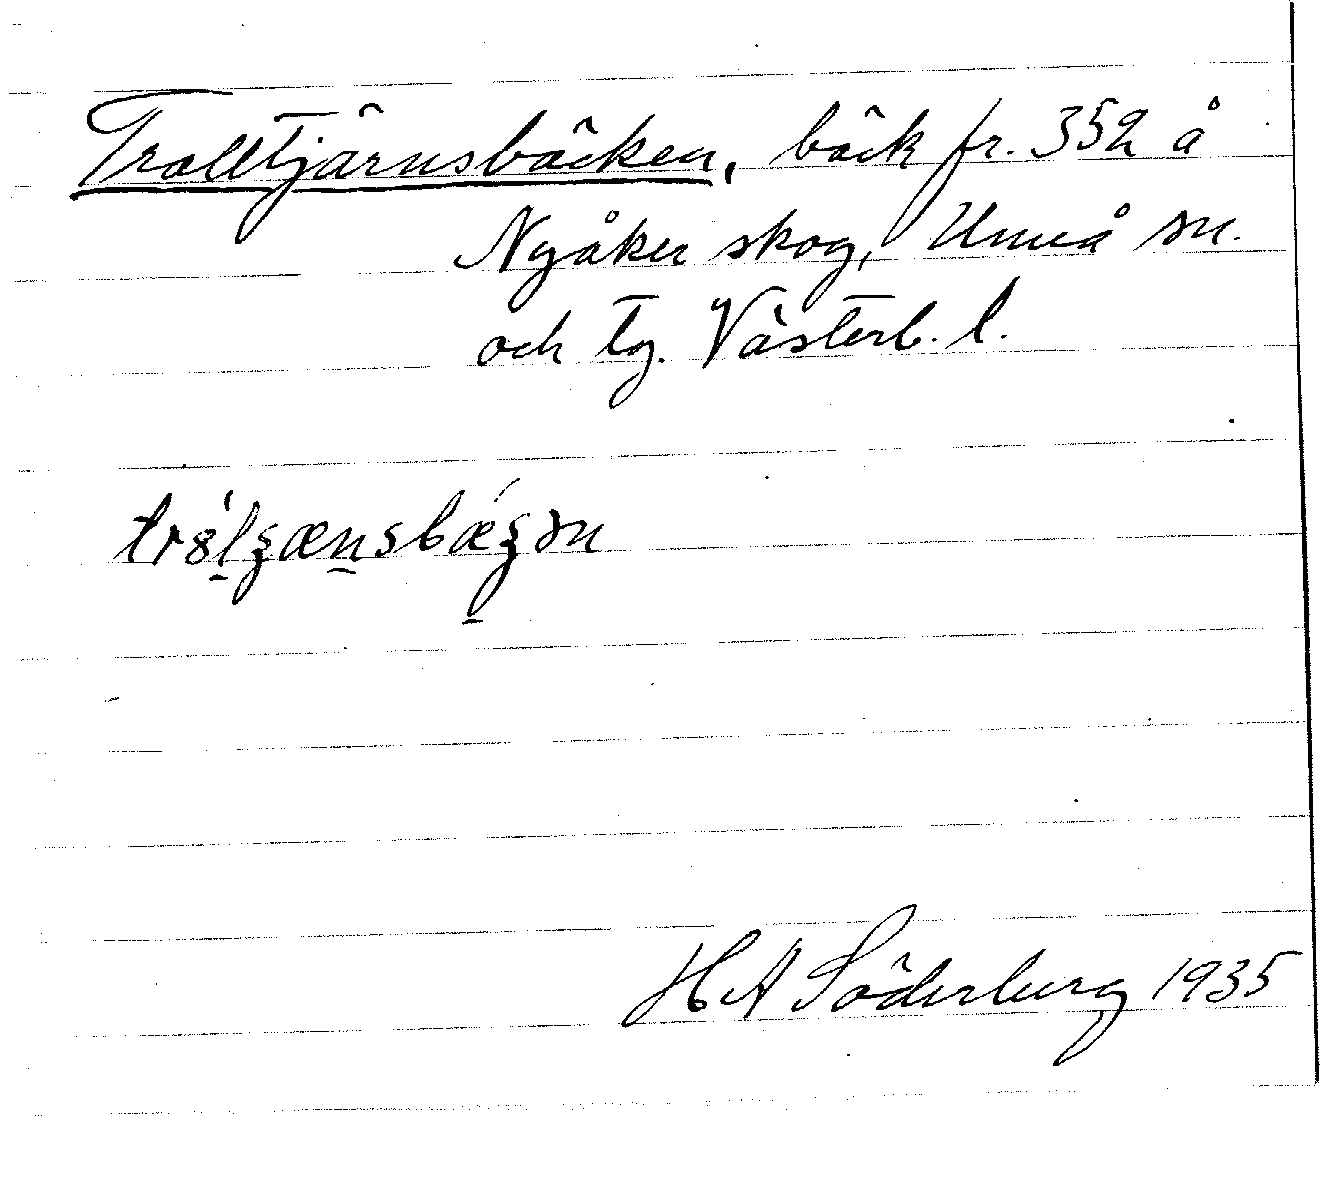 Trolltjärnsbäcken, bäck fr. 352 å
Nyåker skog, Umeå sn.
och tg. Västerb. l.
H A Söderberg 1935